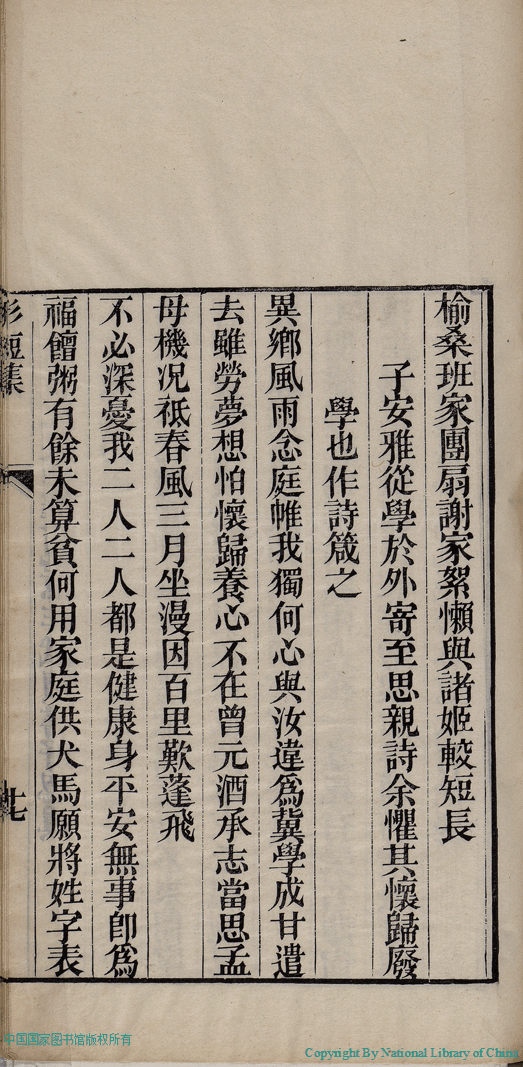 榆桑班家團扇謝家絮懶與諸姬較短長
子安雅從學於外寄至思親詩余懼其懷歸廢
學也作詩箴之
異鄉風雨念庭帷我獨何心與汝違爲冀學成甘遣
去雖勞夢想怕懷歸養心不在曾元酒承志當思孟
母機况祇春風三月坐漫因百里歎蓬飛
不必深憂我二人二人都是健康身平安無事卽爲
福饘粥有餘未算貧何用家庭供犬馬願將姓字表
短集
七
中国国家图书馆版权所有
Copyright By National Library of China